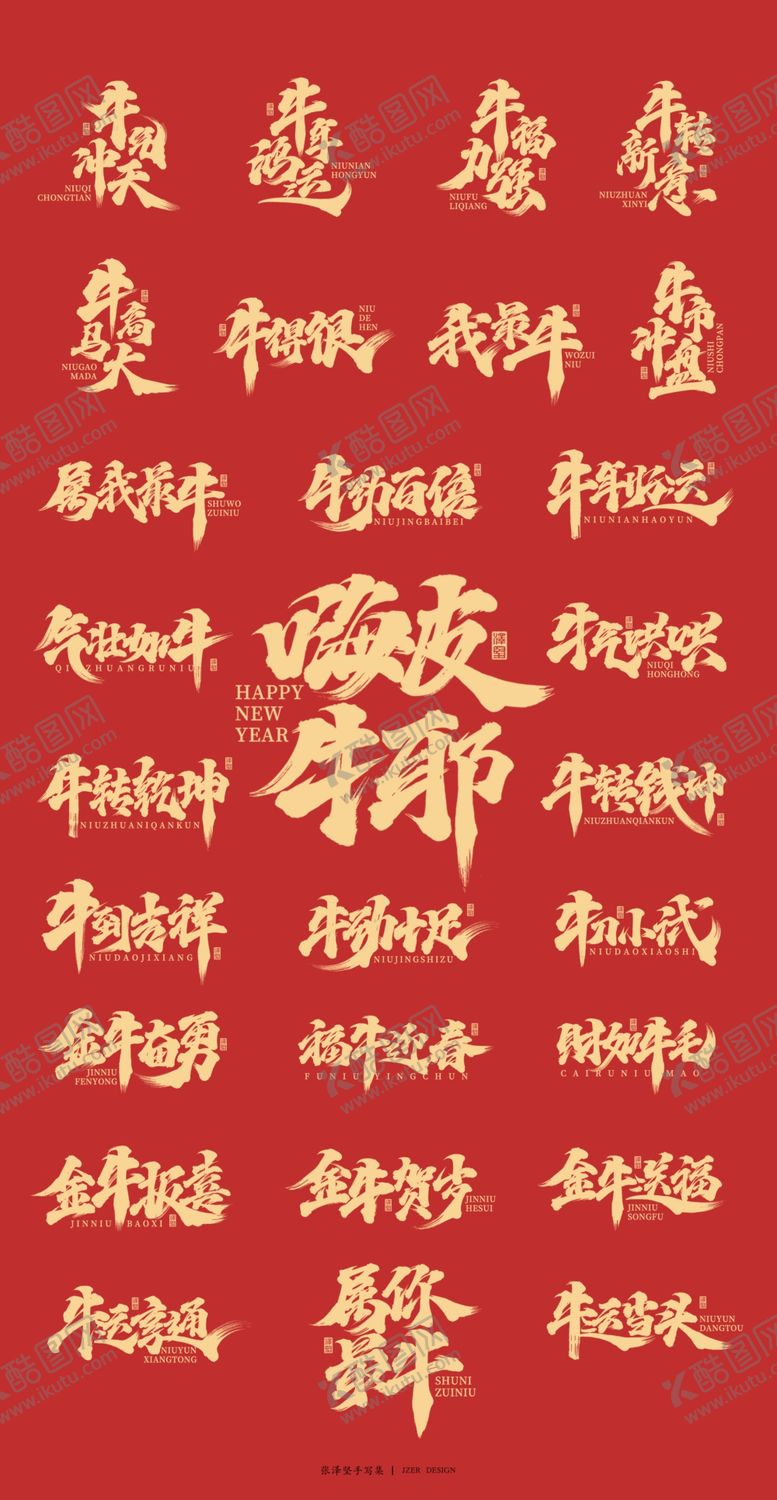 牛气冲天
NIUQI
CHONGTIAN
牛年鸿运
NIUNIAN
HONGYUN
牛福力强
NIUFU
LIQIANG
牛转新意
NIUZHUAN
XINYI
牛高马大
NIUGAO
MADA
牛得很
NIU
DE
HEN
我最牛
WOZUI
NIU
牛市冲盘
NIUSHI
CHONGPAN
属我最牛
SHUWO
ZUINIU
牛劲百倍
NIUJINGBAIBEI
牛年好运
NIUNIANHAOYUN
气壮如牛
QIZHUANGRUNIU
嗨皮
牛耶
HAPPY
NEW
YEAR
牛气哄哄
NIUQI
HONGHONG
牛转乾坤
NIUZHUANIQANKUN
牛转钱坤
NIUZHUANQIANKUN
牛到吉祥
NIUDAOJIXIANG
牛劲十足
NIUJINGSHIZU
牛刀小试
NIUDAOXIAOSHI
金牛奋勇
JINNIU
FENYONG
福牛迎春
FUNIUYINGCHUN
财如牛毛
CAIRUNIUMAO
金牛报喜
JINNIU BAOXI
金牛贺岁
JINNIU
HESUI
金牛送福
JINNIU
SONGFU
牛运亨通
NIUYUN
XIANGTONG
属你
最牛
SHUNI
ZUINIU
牛运当头
NIUYUN
DANGTOU
张泽坚手写集 | JZER DESIGN
酷图网
www.ikutu.com